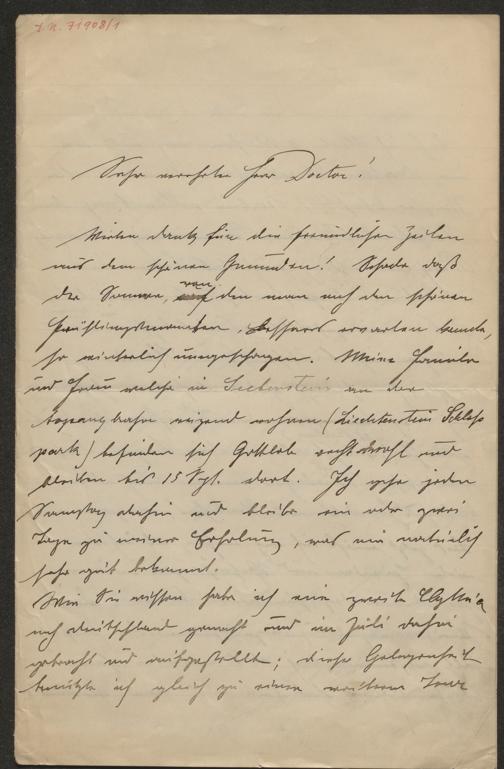 I.N. 71908/1
Sehr verehrter Herr Doctor!
Vielen Dank für die freundlichen Zeilen
aus dem schönen Gmunden! Schade daß
der Sommer, von den man nach den schönen
Frühlingsmonaten, besseres erwarten konnte,
so winterlich umgeschlagen. Meine Familie
und Frau welche in Seebenstein an der
Aspangbahn reizend wohnen (Liechtenstein Schloß
park) befinden sich Gottlob recht wohl und
bleiben bis 15 Spt. dort. Ich gehe jeden
Samstag dahin und bleibe ein oder zwei
Tage zu meiner Erholung, was mir natürlich
sehr gut bekommt.
Wie Sie wissen habe ich eine zweite
nach Deutschland gemacht und im Juli dahin
gebracht und aufgestellt; diese Gelegenheit
benützte ich gleich zu einer weiteren Tour